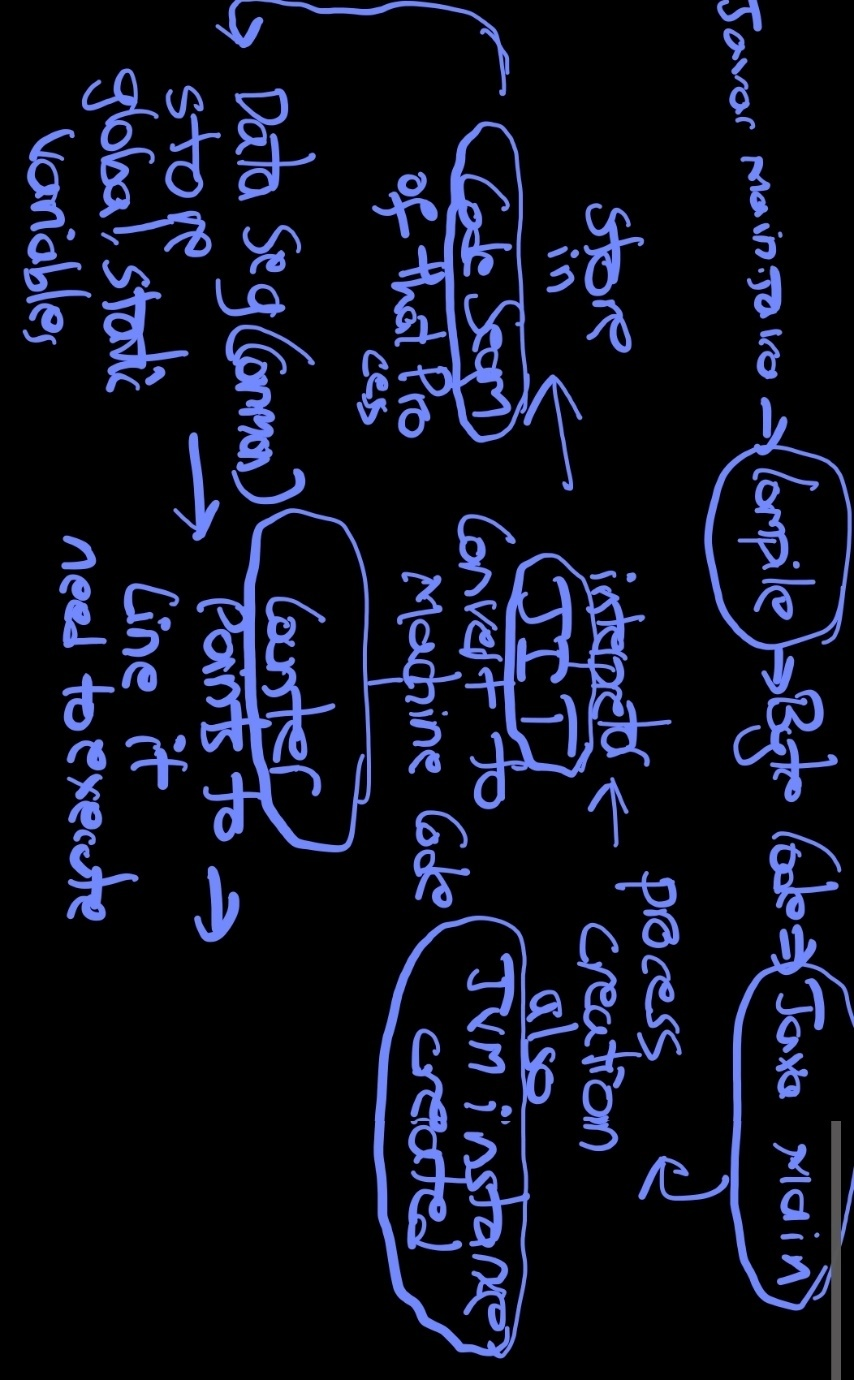 Javac Main.Java → Compile → Byte Code ⇒ Java Main
process
creation
also
JVM instance
created
interpretor
JIT
Convert to
Machine Code
Store
in
Code Segm
of that Pro
cess
Data Seg (Common)
store
global, static
variables
Counter
Points to
Line it
need to execute